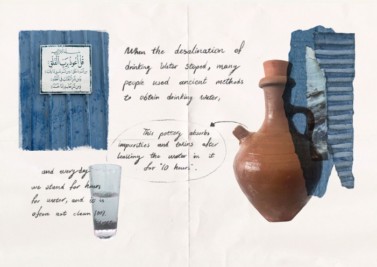 When the desalination of
drinking water stoped, many
people used ancient methods
to obtain drinking water,
This pottery absorbs
impurities and toxins after
leaving the water in it
for "10 hours".
and everyday
we stand for hours
for water, and it is
often not clean